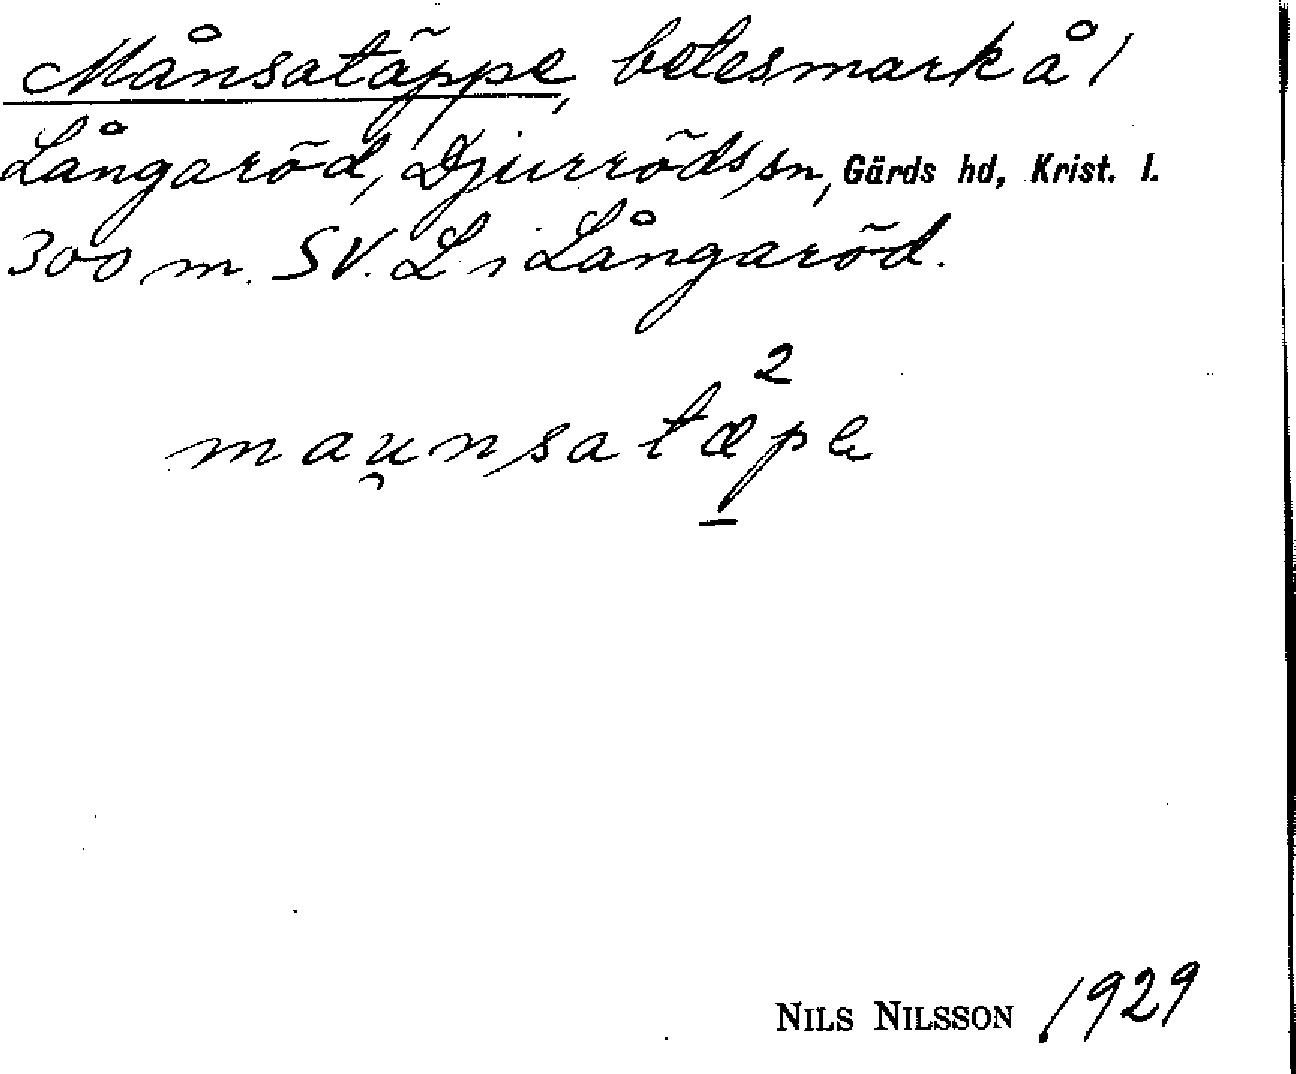 Månsatäppe, betesmark å 1
Långaröd, Djurröds sn, Gärds hd, Krist. l.
300 m. SV. L i Långaröd.
2
mau̯nsatæpe
NILS NILSSON 1929